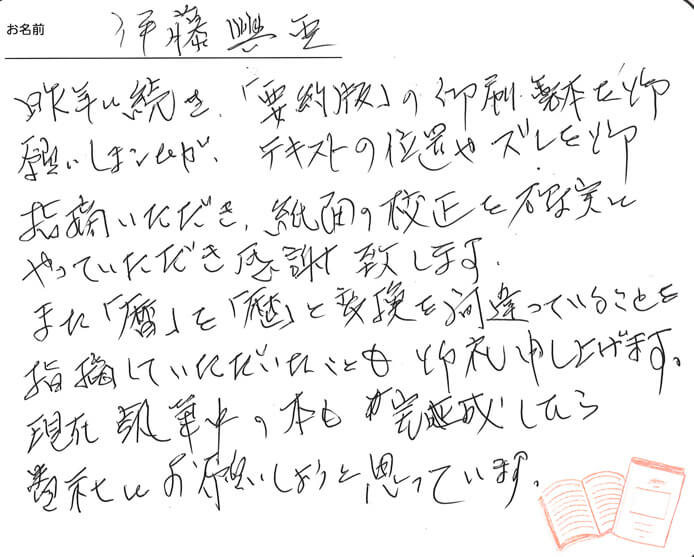 お名前 伊藤興亜
昨年に続き、「要約版」の印刷・製本をお
願いしましたが、テキストの位置やズレを御
指摘いただき、紙面の校正を確実に
やっていただき感謝致します。
また「暦」を「歴」と変換を間違っていることを
指摘していただいたことも御礼申し上げます。
現在執筆中の本も完成したら
貴社にお願いしようと思っています。